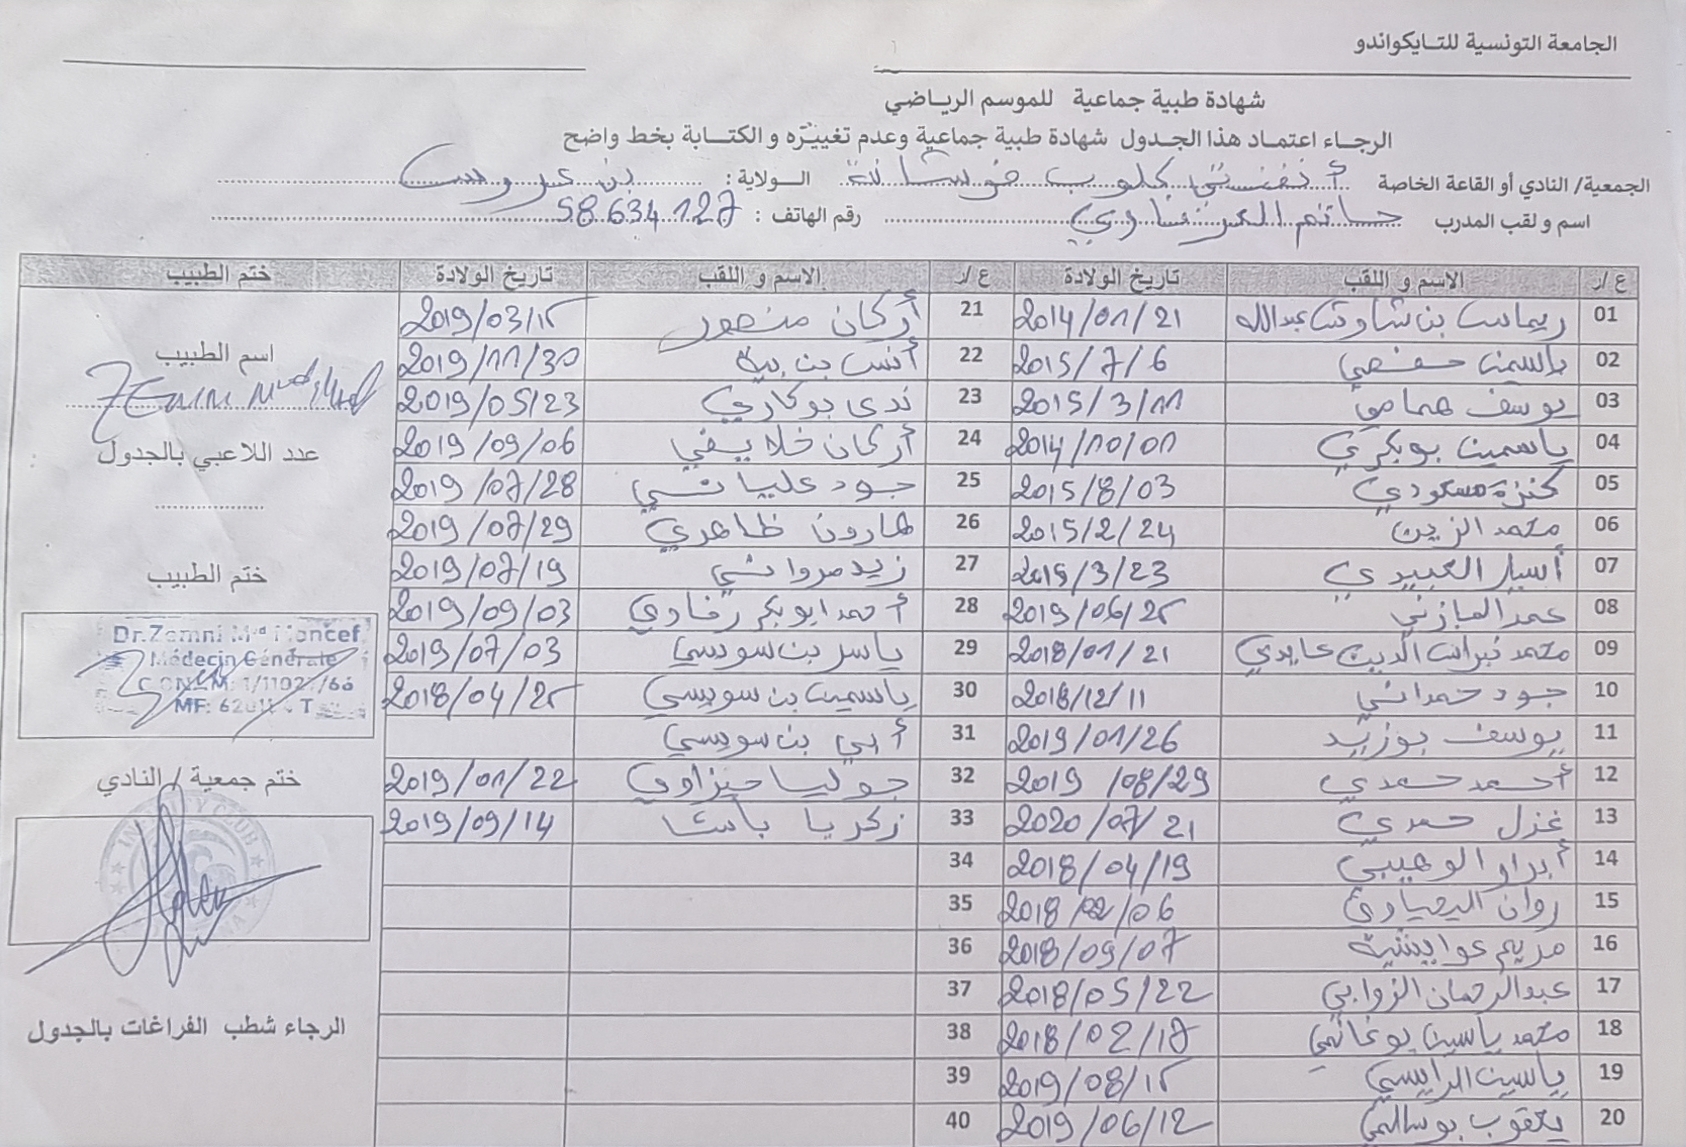 الجامعة التونسية للتايكواندو
شهادة طبية جماعية للموسم الرياضي
الرجاء اعتماد هذا الجدول شهادة طبية جماعية وعدم تغييره و الكتابة بخط واضح
الجمعية/ النادي أو القاعة الخاصة أنفنتي كلوب فوشانة الولاية: بن عروس
اسم و لقب المدرب حاتم العرفاوي رقم الهاتف: 58.634.127
ع/ر الاسم و اللقب تاريخ الولادة ع/ر الاسم و اللقب تاريخ الولادة ختم الطبيب
01 ريماس بن شاوش عبدالله 2014/01/21 21 أركان منصور 2019/03/15
02 ياسمين حفصي 2015/7/6 22 أنس بن بية 2019/11/30
03 يوسف همامي 2015/3/11 23 ندى بوكاري 2019/05/23
04 ياسمين بوبكري 2014/10/01 24 أركان خلايفي 2019/09/06
05 كنزة مسعودي 2015/8/03 25 جود عليانسي 2019/07/28
06 محمد الزين 2015/2/24 26 هارون طاهري 2019/07/29
07 أسيل العبيدي 2015/3/23 27 زيد مرواني 2019/07/19
08 عمر المازني 2019/06/25 28 أحمد ابوبكر رفاوي 2019/09/03
09 محمد نبراس الدين عابدي 2018/01/21 29 ياسر بن سويسي 2019/07/03
10 جود حمداني 2018/12/11 30 ياسمين بن سويسي 2018/04/25
11 يوسف بوزيد 2019/01/26 31 أبي بن سويسي
12 أحمد حمدي 2019/08/29 32 جوليا حيزاوي 2019/01/22
13 غزل حمدي 2020/07/21 33 زكريا باشا 2019/09/14
14 أبرار الوهيبي 2018/04/19 34
15 روان اليحياوي 2018/02/06 35
16 مريم عوايشية 2018/09/07 36
17 عبدالرحمان الزوابي 2018/05/22 37
18 محمد ياسين بوغانمي 2018/02/17 38
19 ياسين الرايسي 2019/08/15 39
20 يعقوب بوسالمي 2019/06/12 40
اسم الطبيب
Zemni
عدد اللاعبي بالجدول
ختم الطبيب
Dr.Zemni Med Moncef
Médecin Générale
CONAM: 1/11027/66
ختم جمعية / النادي
INFINITY CLUB
الرجاء شطب الفراغات بالجدول